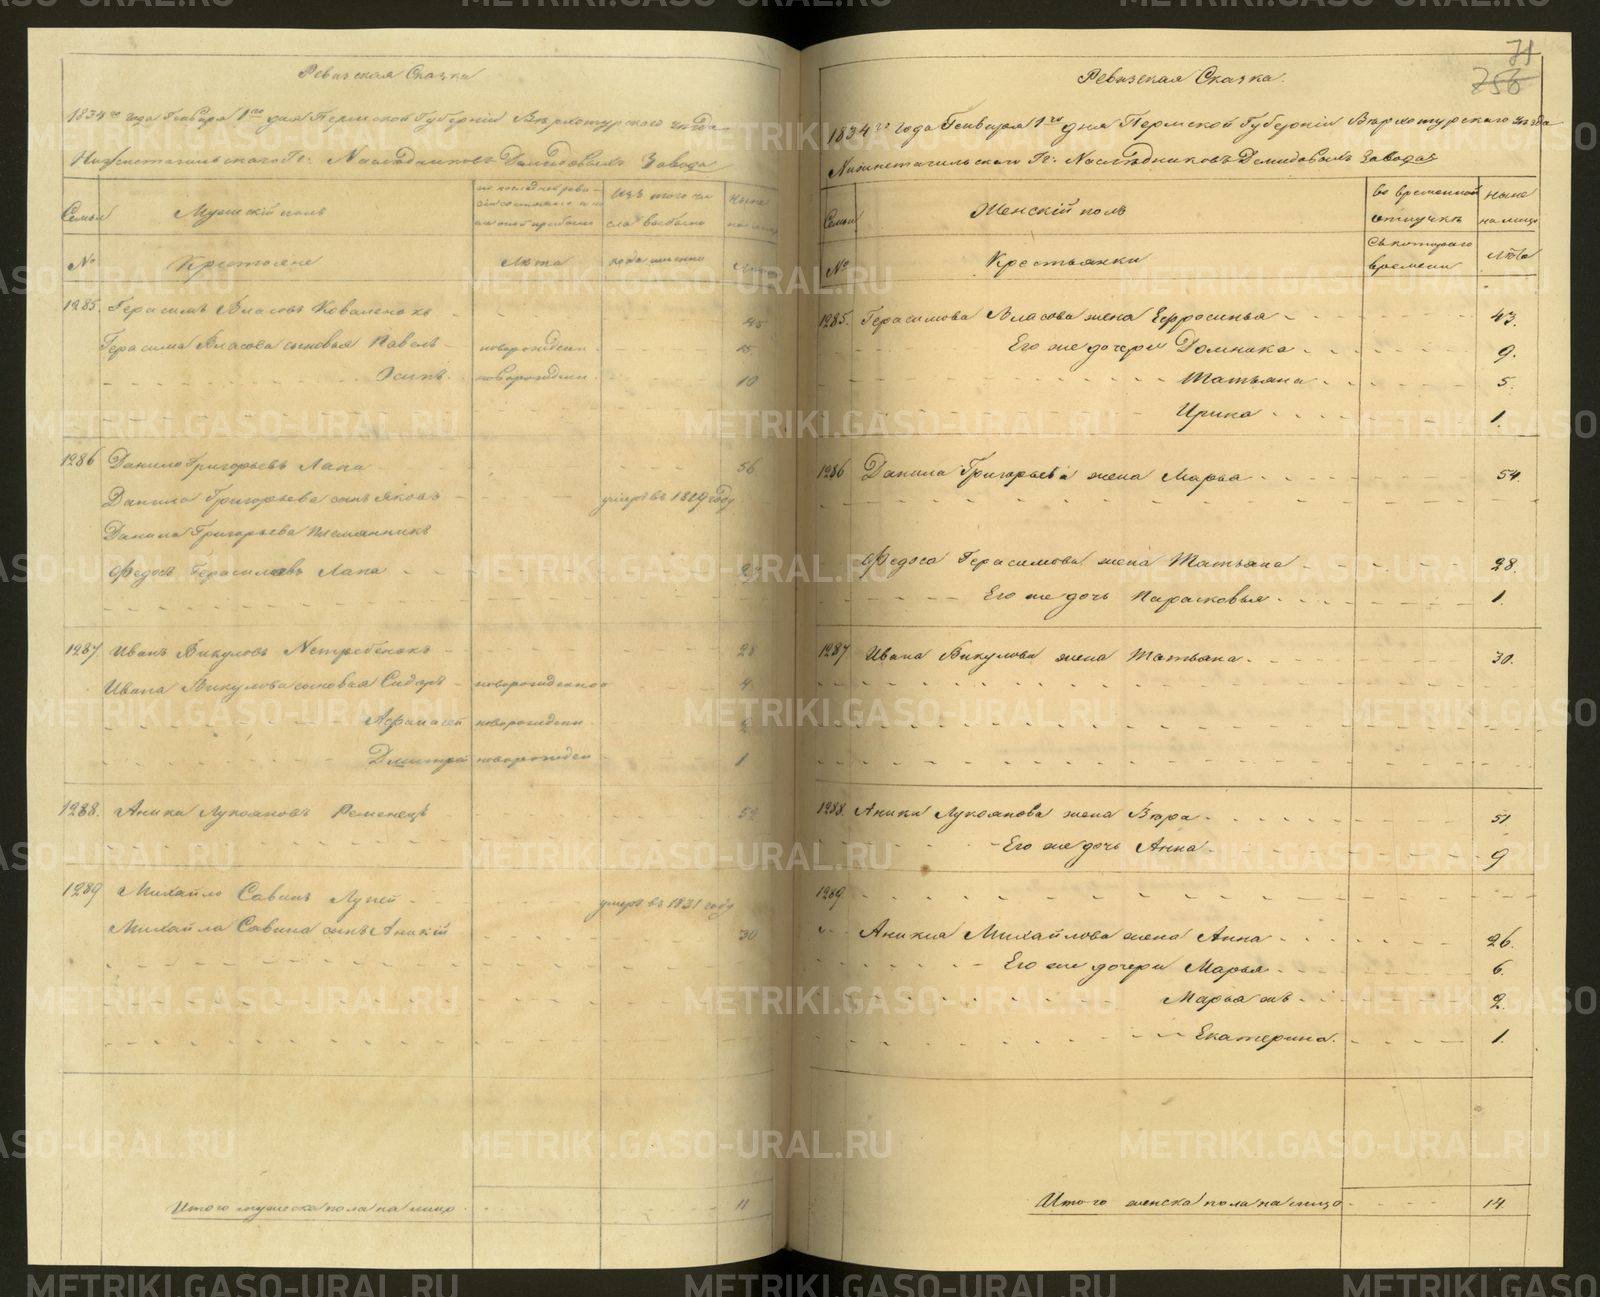 Ревизская Сказка
1834го года Генваря 1го дня Пермской Губернiи Верхотурского уезда
Нижнетагильского Гг: Наследниковъ Демидовыхъ Завода
Семьи
Мужескiй полъ
Изъ того чи
сла выбыло
Ныне
на лицо
№
Крестьяне
Лета
когда именно
Лета
1285. Герасимъ Власовъ Коваленокъ 45
Герасима Власова сыновья Павелъ новорожден. 15
Осипъ. новорожден. 10
1286 Данило Григорьевъ Лапа 56
Данила Григорьева сынъ Яковъ умеръ въ 1829 году
Данила Григорьева племянникъ
Федосъ Герасимовъ Лапа 27
1287. Иванъ Викуловъ Нетребенокъ 28
Ивана Викулова сыновья Сидоръ новорожденно 4
Афанасей новорожден.
Дмитрей новорожден 1
1288. Аника Лукояновъ Ременецъ 52
1289 Михайло Савинъ Лупей умеръ въ 1831 году
Михайла Савина сынъ Аникiй 30
Итого мужеска пола на лицо 11
71
756
Ревизская Сказка.
1834го года Генваря 1го дня Пермской Губернiи Верхотурского уезда
Нижнетагильского Гг: Наследниковъ Демидовыхъ Завода
Семьи
Женскiй полъ
во временной
отлучке
Ныне
на лицо
№
Крестьянки
Съ котораго
времени
Лета
1285. Герасимова Власова жена Ефросинья 43.
Его же дочери Домника 9.
Татьяна 5.
Ирина 1.
1286 Данила Григорьева жена Марья 54.
Федоса Герасимова жена Татьяна 28.
Его же дочь Парасковья 1.
1287 Ивана Викулова жена Татьяна. 30.
1288. Аники Лукоянова жена Вера 51.
Его же дочь Анна 9
1289.
Аникiя Михайлова жена Анна 26.
Его же дочери Марья 6.
Марья жъ 2.
Екатерина. 1.
Итого женска пола на лицо 14
METRIKI.GASO-URAL.RU